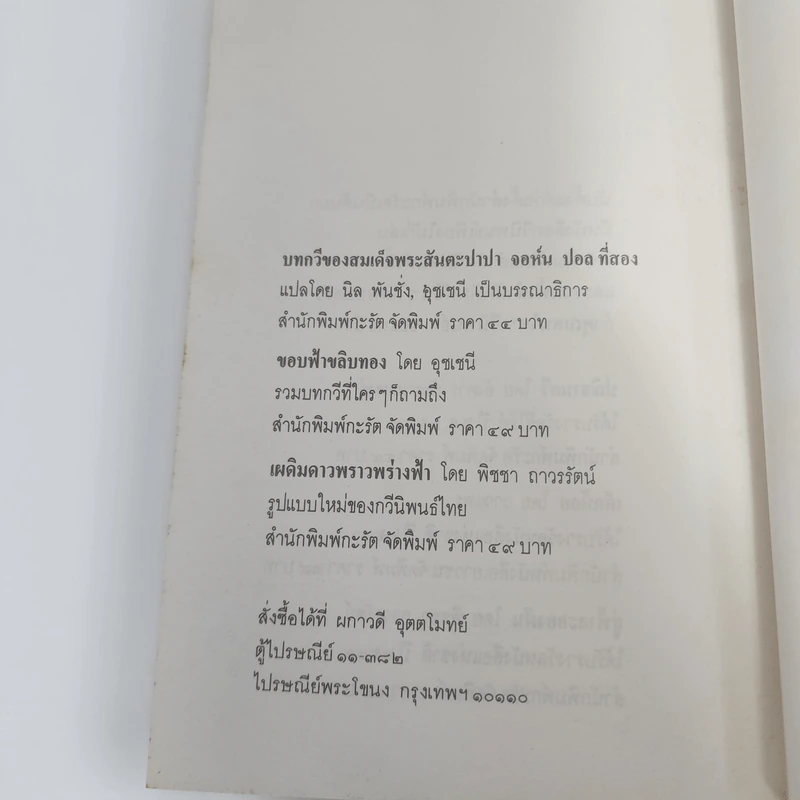 บทกวีของสมเด็จพระสันตะปาปา จอห์น ปอล ที่สอง
แปลโดย นิล พันชั่ง, อุชเชนี เป็นบรรณาธิการ
สำนักพิมพ์กะรัต จัดพิมพ์ ราคา ๔๔ บาท
ขอบฟ้าขลิบทอง โดย อุชเชนี
รวมบทกวีที่ใครๆก็ถามถึง
สำนักพิมพ์กะรัต จัดพิมพ์ ราคา ๔๙ บาท
เผดิมดาวพราวพร่างฟ้า โดย พิชชา ถาวรรัตน์
รูปแบบใหม่ของกวีนิพนธ์ไทย
สำนักพิมพ์กะรัต จัดพิมพ์ ราคา ๔๙ บาท
สั่งซื้อได้ที่ ผกาวดี อุตตโมทย์
ตู้ไปรษณีย์ ๑๑-๓๘๒
ไปรษณีย์พระโขนง กรุงเทพฯ ๑๐๑๑๐